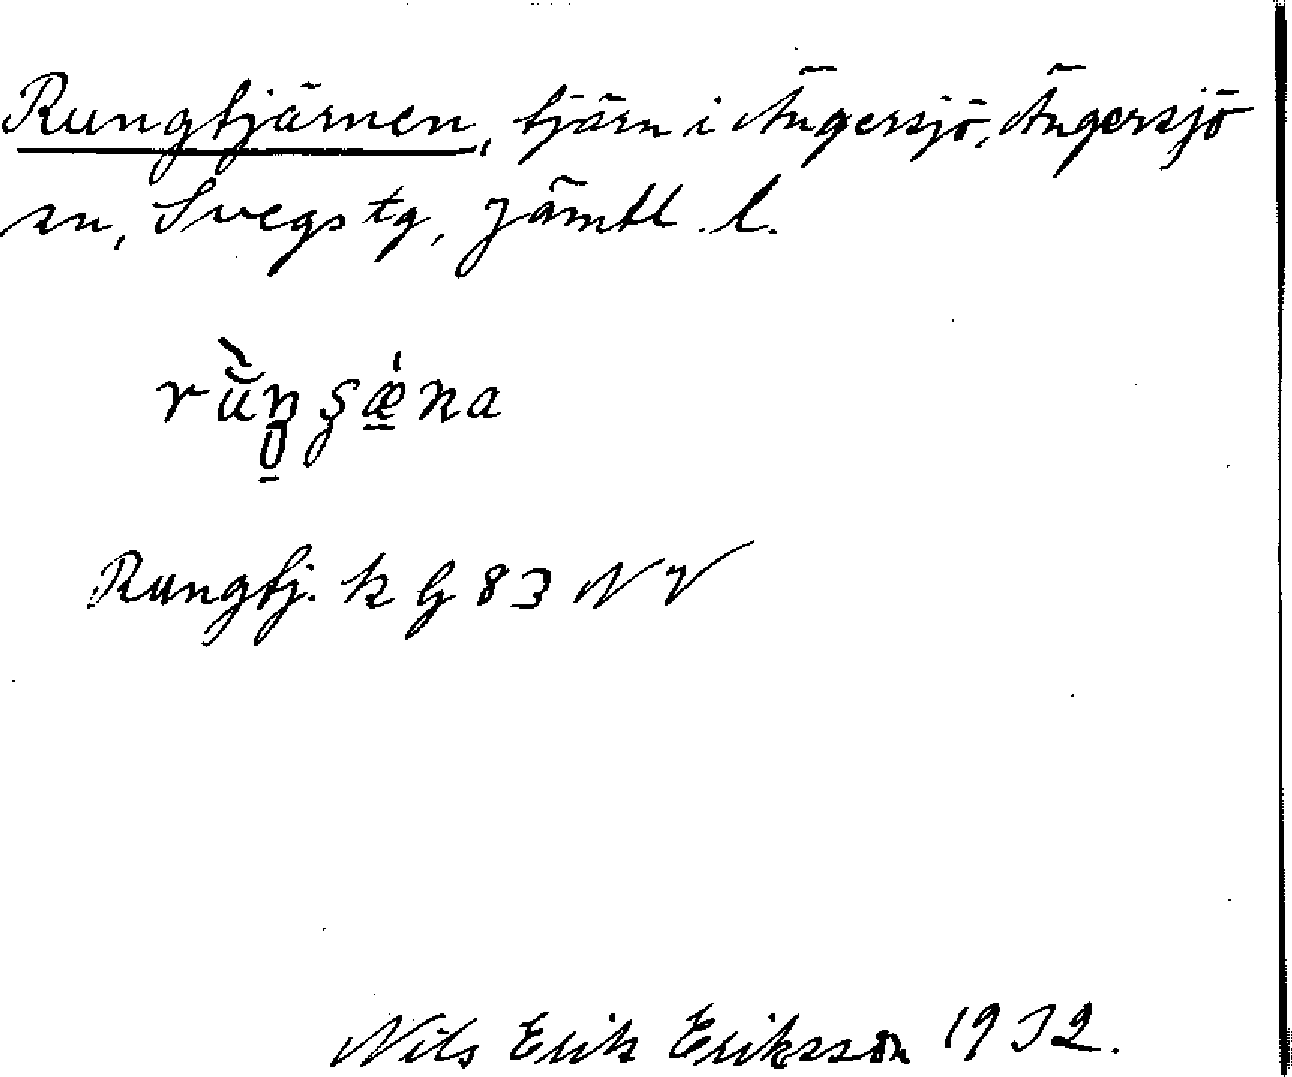 Rungtjärnen, tjärn i Ängersjö, Ängersjö
sn, Svegs tg, Jämtl. l.
rùŋşǽ̠na
Rungtj. k G 83 NV
Nils Erik Eriksson 1932.